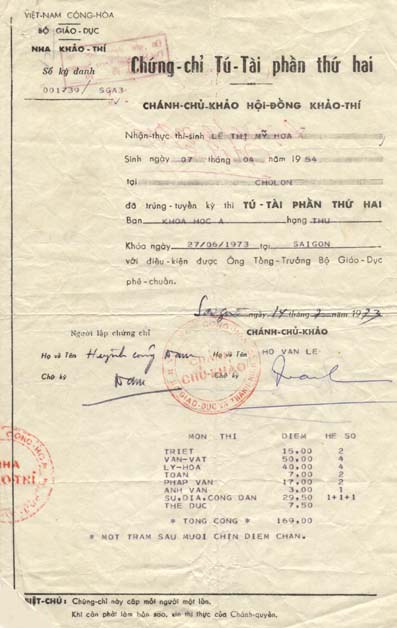 VIỆT-NAM CỘNG-HÒA
BỘ GIÁO-DỤC
NHA KHẢO-THÍ
Số ký danh
001739/ SGA3
Chứng-chỉ Tú-Tài phần thứ hai
CHÁNH-CHỦ-KHẢO HỘI-ĐỒNG KHẢO-THÍ
Nhận-thực thí-sinh LÊ THỊ MỸ HOA
Sinh ngày 07 tháng 04 năm 1954
tại CHOLON
đã trúng-tuyển kỳ thi TÚ-TÀI PHẦN THỨ HAI
Ban KHOA HOC A hạng THU
Khóa ngày 27/06/1973 tại SAIGON
với điều-kiện được Ông Tổng-Trưởng Bộ Giáo-Dục
phê-chuẩn.
Saigon ngày 14 tháng 7 năm 1973
Người lập chứng chỉ
CHÁNH-CHỦ-KHẢO
Họ và Tên Huỳnh Công Nam Họ và Tên HO VAN LE
Chữ ký Nam Chữ ký
CHÁNH
CHỦ-KHẢO
MON THI DIEM HE SO
TRIET 15.00 2
VAN-VAT 50.00 4
LY-HOA 40.00 4
TOAN 7.00 2
PHAP VAN 17.00 2
ANH VAN 3.00 1
SU.DIA.CONG DAN 29.50 1+1+1
THE DUC 7.50
* TONG CONG * 169.00
* MOT TRAM SAU MUOI CHIN DIEM CHAN.
NHA
KHẢO-THÍ
VIỆT-CHÚ: Chứng-chỉ này cấp mỗi người một lần.
Khi cần phải làm bản sao, xin thị thực của Chánh-quyền.